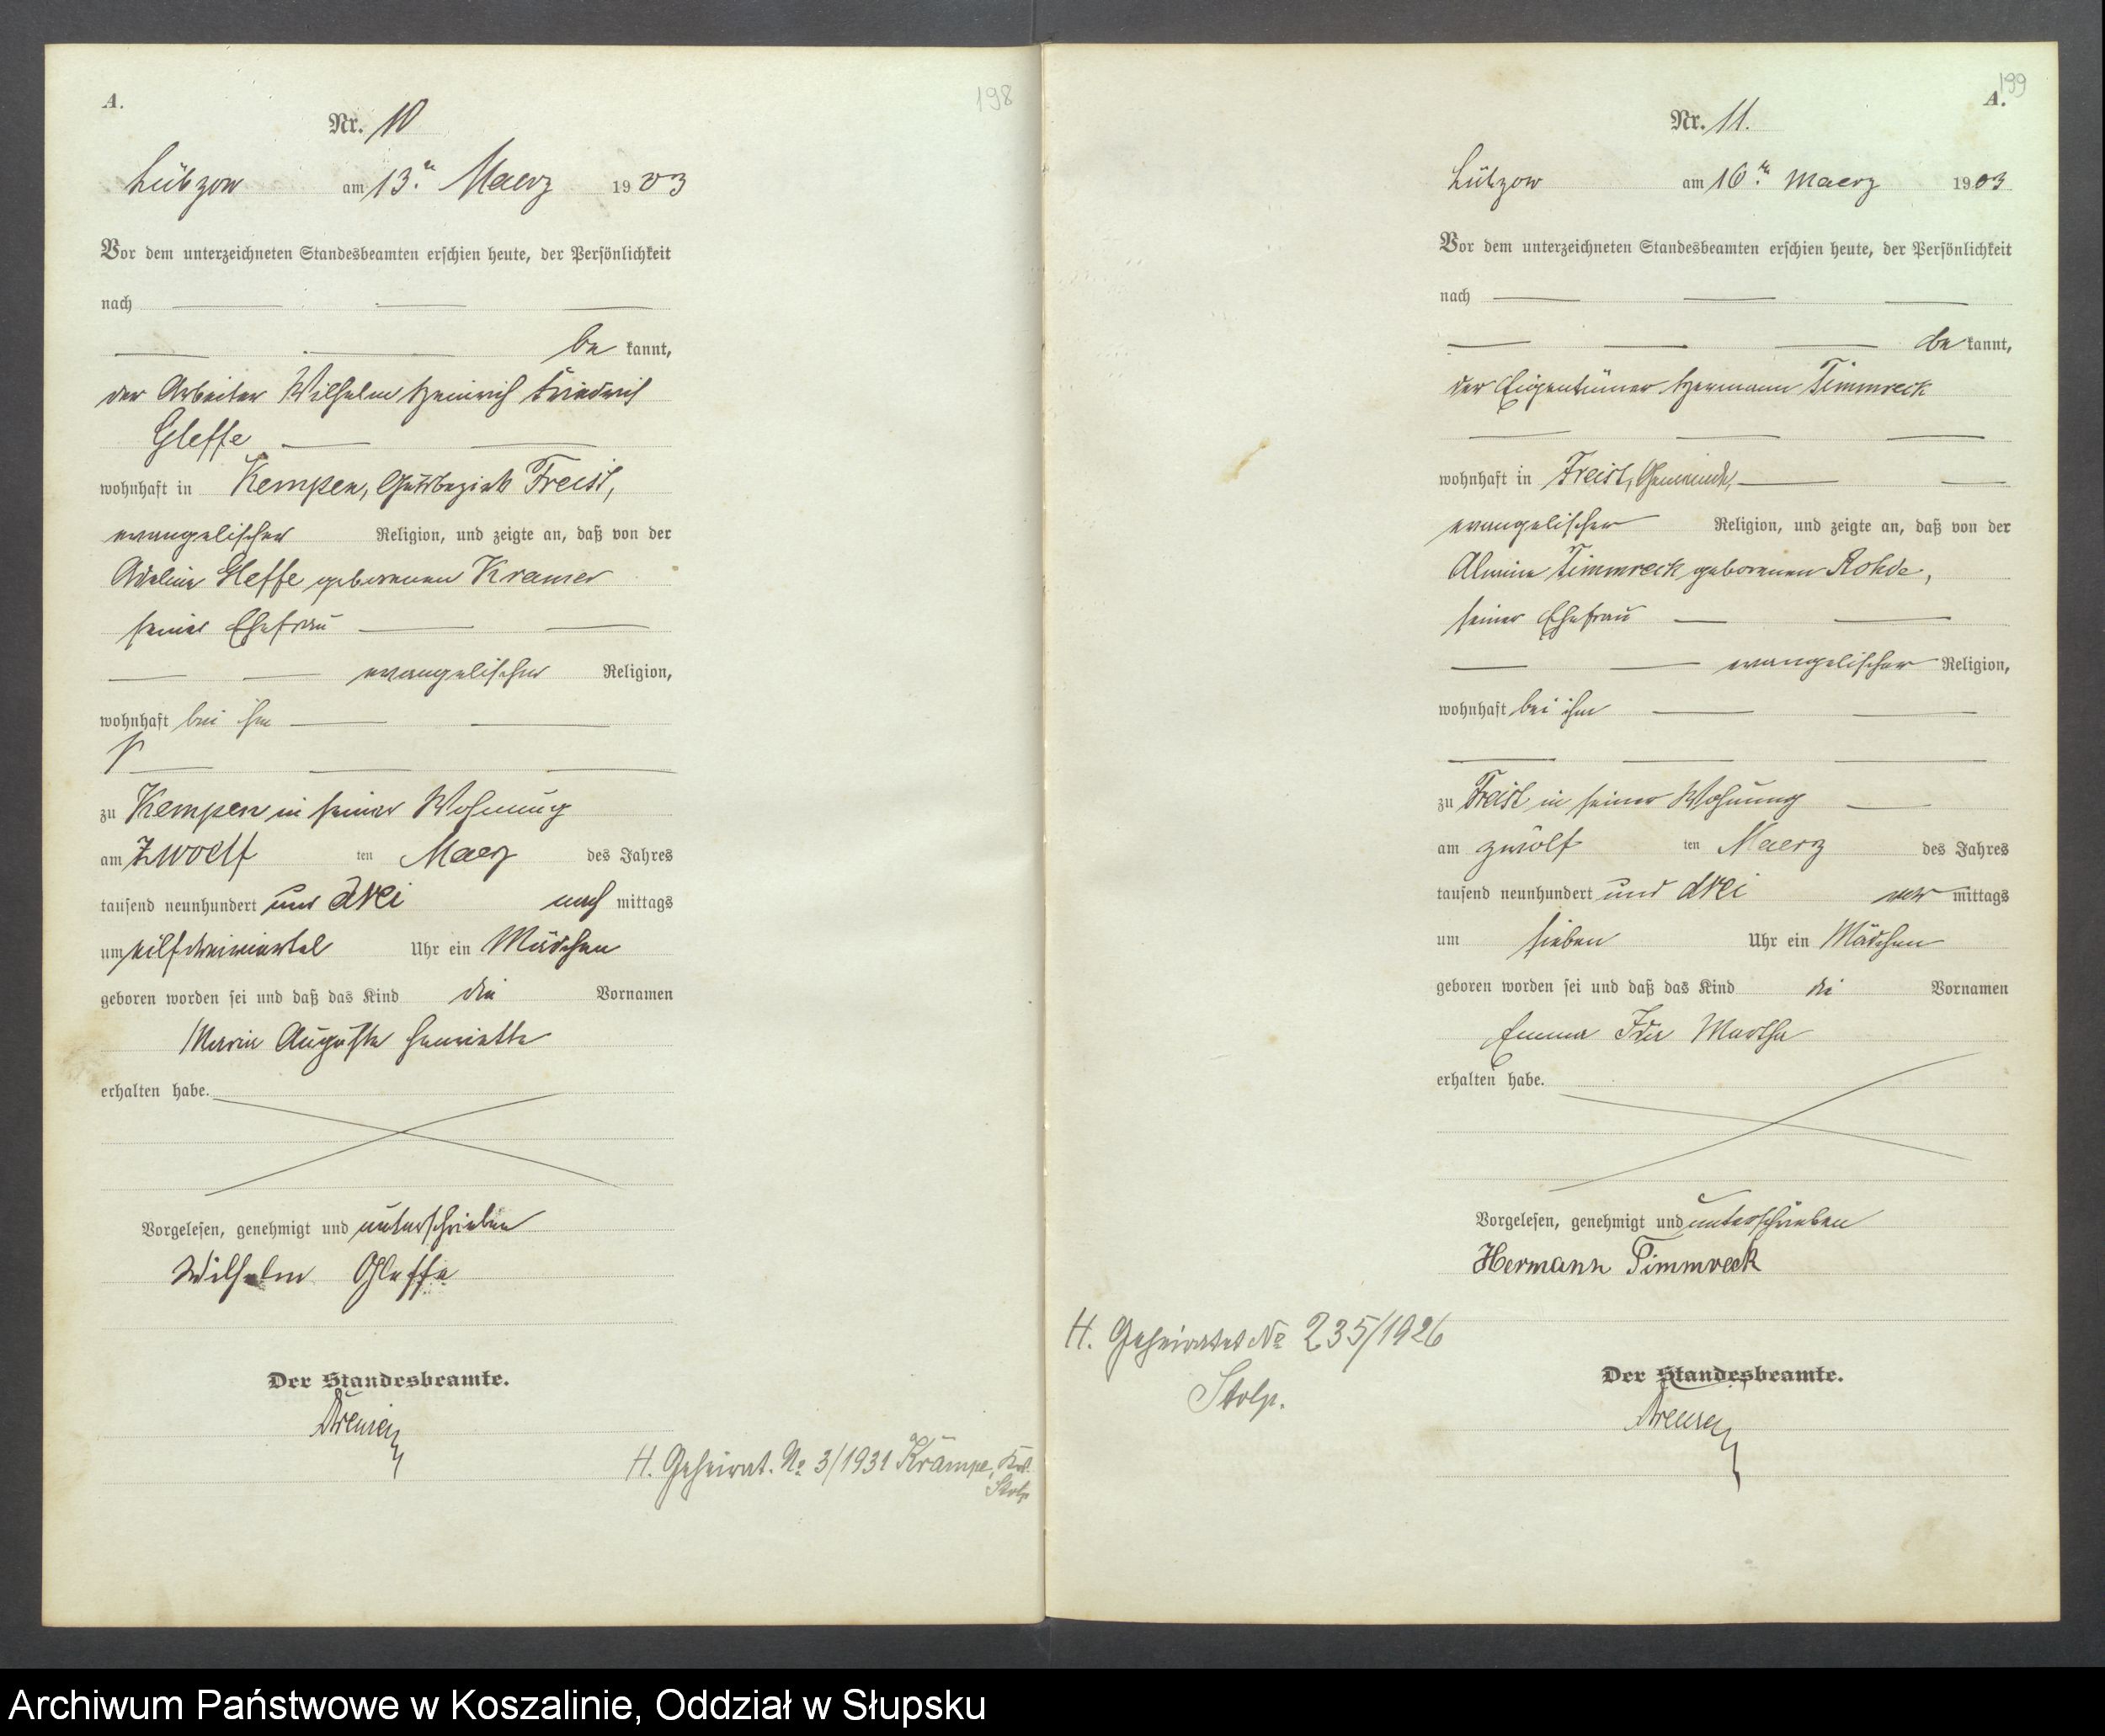 198
A.
Nr. 10
Lübzow am 13.ten Maerz 1903
Vor dem unterzeichneten Standesbeamten erschien heute, der Persönlichkeit
nach
be kannt,
der Arbeiter Wilhelm Heinrich Friedrich
Gleffe
wohnhaft in Kempen, Gutsbezirk Freist,
evangelischer Religion, und zeigte an, daß von der
Adeline Gleffe geborenen Kramer
seiner Ehefrau
evangelischer Religion,
wohnhaft bei ihm
zu Kempen in seiner Wohnung
am zwoelf ten Maerz des Jahres
tausend neunhundert und drei nach mittags
um elfdreiviertel Uhr ein Mädchen
geboren worden sei und daß das Kind die Vornamen
Marie Auguste Henriette
erhalten habe.
Vorgelesen, genehmigt und unterschrieben
Wilhelm Gleffe
Der Standesbeamte.
H. Geheirat. No 3/1931 Krampe, Krs.
Stolp
199
A.
Nr. 11.
Lübzow am 16.ten Maerz 1903
Vor dem unterzeichneten Standesbeamten erschien heute, der Persönlichkeit
nach
be kannt,
der Eigentümer Hermann Timmreck
wohnhaft in Freist, Gemeinde,
evangelischer Religion, und zeigte an, daß von der
Alwine Timmreck geborenen Rohde,
seiner Ehefrau
evangelischer Religion,
wohnhaft bei ihm
zu Freist in seiner Wohnung
am zwölf ten Maerz des Jahres
tausend neunhundert und drei vor mittags
um sieben Uhr ein Mädchen
geboren worden sei und daß das Kind die Vornamen
Emma Ida Martha
erhalten habe.
Vorgelesen, genehmigt und unterschrieben
Hermann Timmreck
H. Geheiratet No 235/1926
Stolp.
Der Standesbeamte.
Archiwum Państwowe w Koszalinie, Oddział w Słupsku